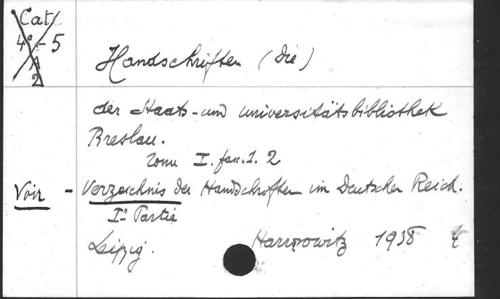 Cat
4° - 5
A
2
Handschriften (Die)
der Staats- und Universitätsbibliothek
Breslau.
Tome I. fasc. 1. 2
Voir - Verzeichnis der Handschriften im Deutschen Reich.
I° Partie
Leipzig. Harrrowitz 1938